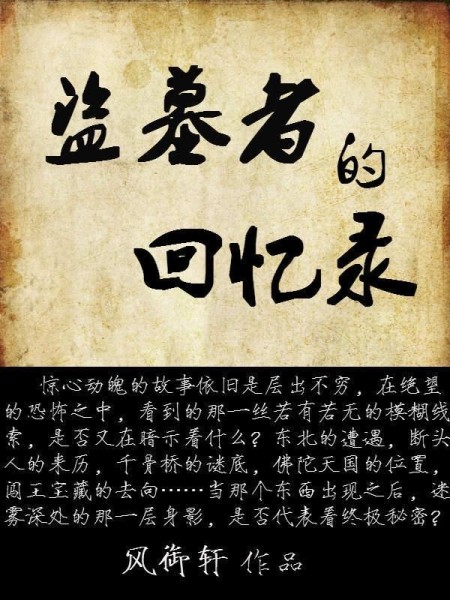 盗墓者的
回忆录
惊心动魄的故事依旧是层出不穷，在绝望
的恐怖之中，看到的那一丝若有若无的模糊线
索，是否又在暗示着什么？东北的遭遇，断头
人的来历，千骨桥的谜底，佛陀天国的位置，
阎王宝藏的去向……当那个东西出现之后，迷
雾深处的那一层身影，是否代表着终极秘密？
风御轩 作品